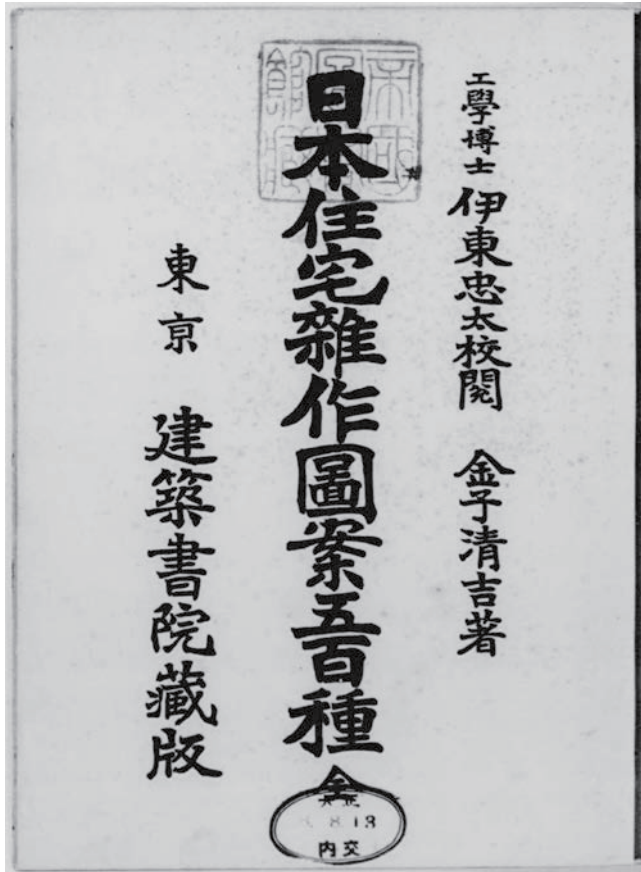 工學博士 伊東忠太校閲 金子清吉著
日本住宅雜作圖案五百種 全
東京 建築書院藏版
大正
8.13
内交